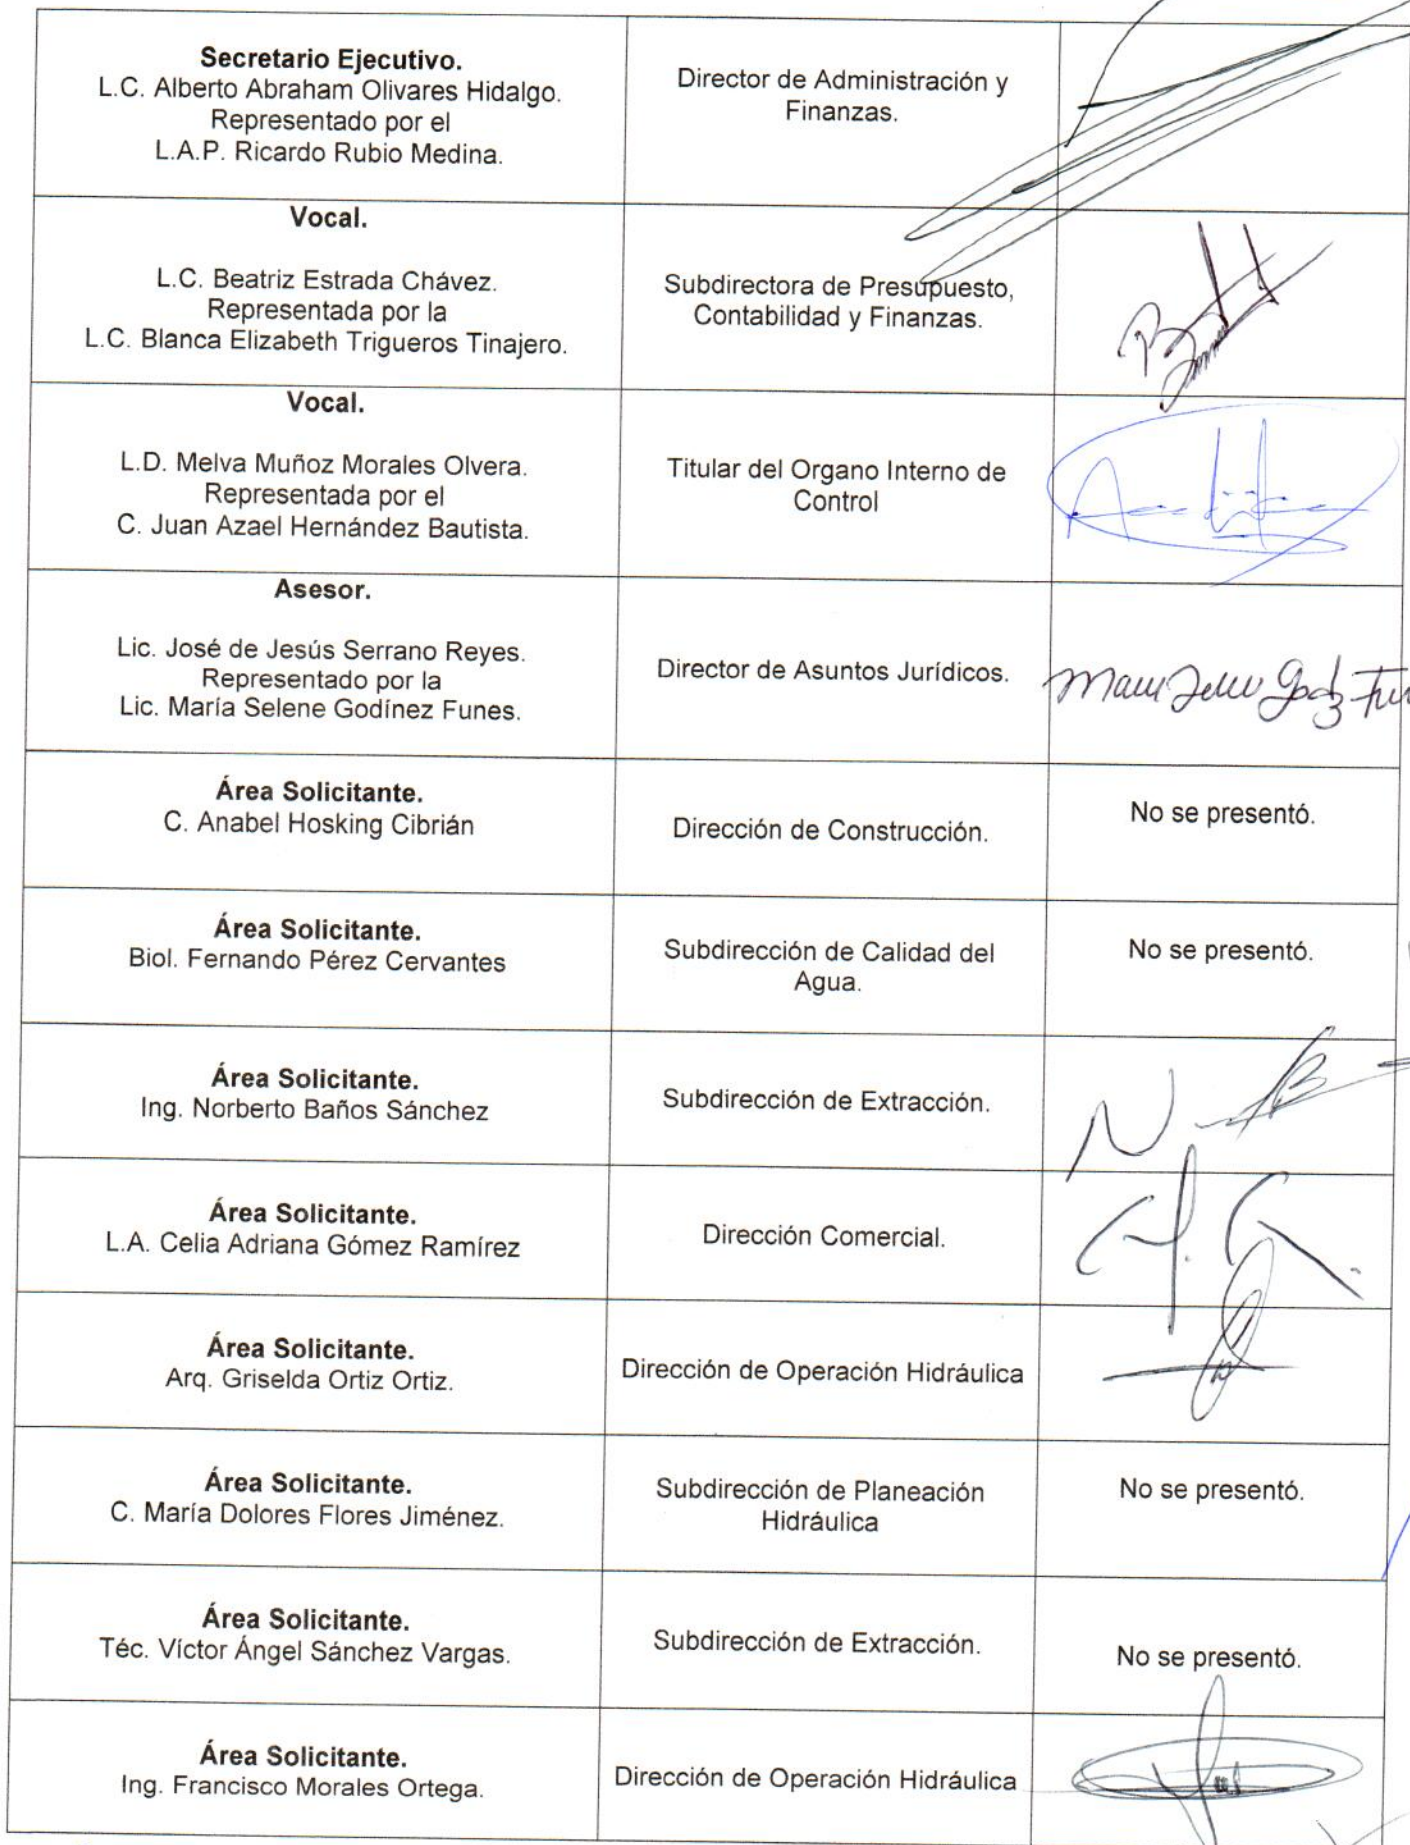 Secretario Ejecutivo.
L.C. Alberto Abraham Olivares Hidalgo.
Representado por el
L.A.P. Ricardo Rubio Medina.
Director de Administración y
Finanzas.
Vocal.
L.C. Beatriz Estrada Chávez.
Representada por la
L.C. Blanca Elizabeth Trigueros Tinajero.
Subdirectora de Presupuesto,
Contabilidad y Finanzas.
Vocal.
L.D. Melva Muñoz Morales Olvera.
Representada por el
C. Juan Azael Hernández Bautista.
Titular del Organo Interno de
Control
Asesor.
Lic. José de Jesús Serrano Reyes.
Representado por la
Lic. María Selene Godínez Funes.
Director de Asuntos Jurídicos.
Área Solicitante.
C. Anabel Hosking Cibrián
Dirección de Construcción.
No se presentó.
Área Solicitante.
Biol. Fernando Pérez Cervantes
Subdirección de Calidad del
Agua.
No se presentó.
Área Solicitante.
Ing. Norberto Baños Sánchez
Subdirección de Extracción.
Área Solicitante.
L.A. Celia Adriana Gómez Ramírez
Dirección Comercial.
Área Solicitante.
Arq. Griselda Ortiz Ortiz.
Dirección de Operación Hidráulica
Área Solicitante.
C. María Dolores Flores Jiménez.
Subdirección de Planeación
Hidráulica
No se presentó.
Área Solicitante.
Téc. Víctor Ángel Sánchez Vargas.
Subdirección de Extracción.
No se presentó.
Área Solicitante.
Ing. Francisco Morales Ortega.
Dirección de Operación Hidráulica